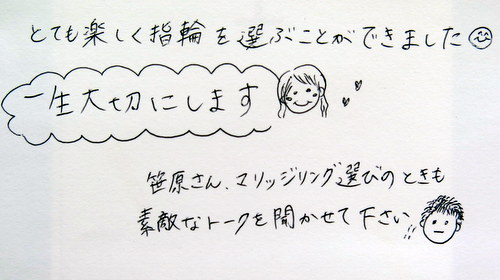 とても楽しく指輪を選ぶことができました
一生大切にします
笹原さん、マリッジリング選びのときも
素敵なトークを聞かせて下さい